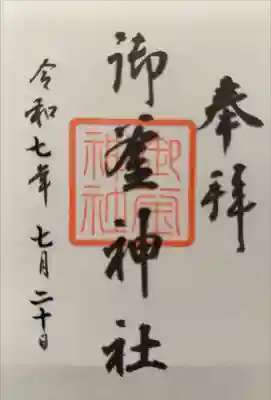 奉拝
御釜神社
御釜神社
令和七年 七月二十日